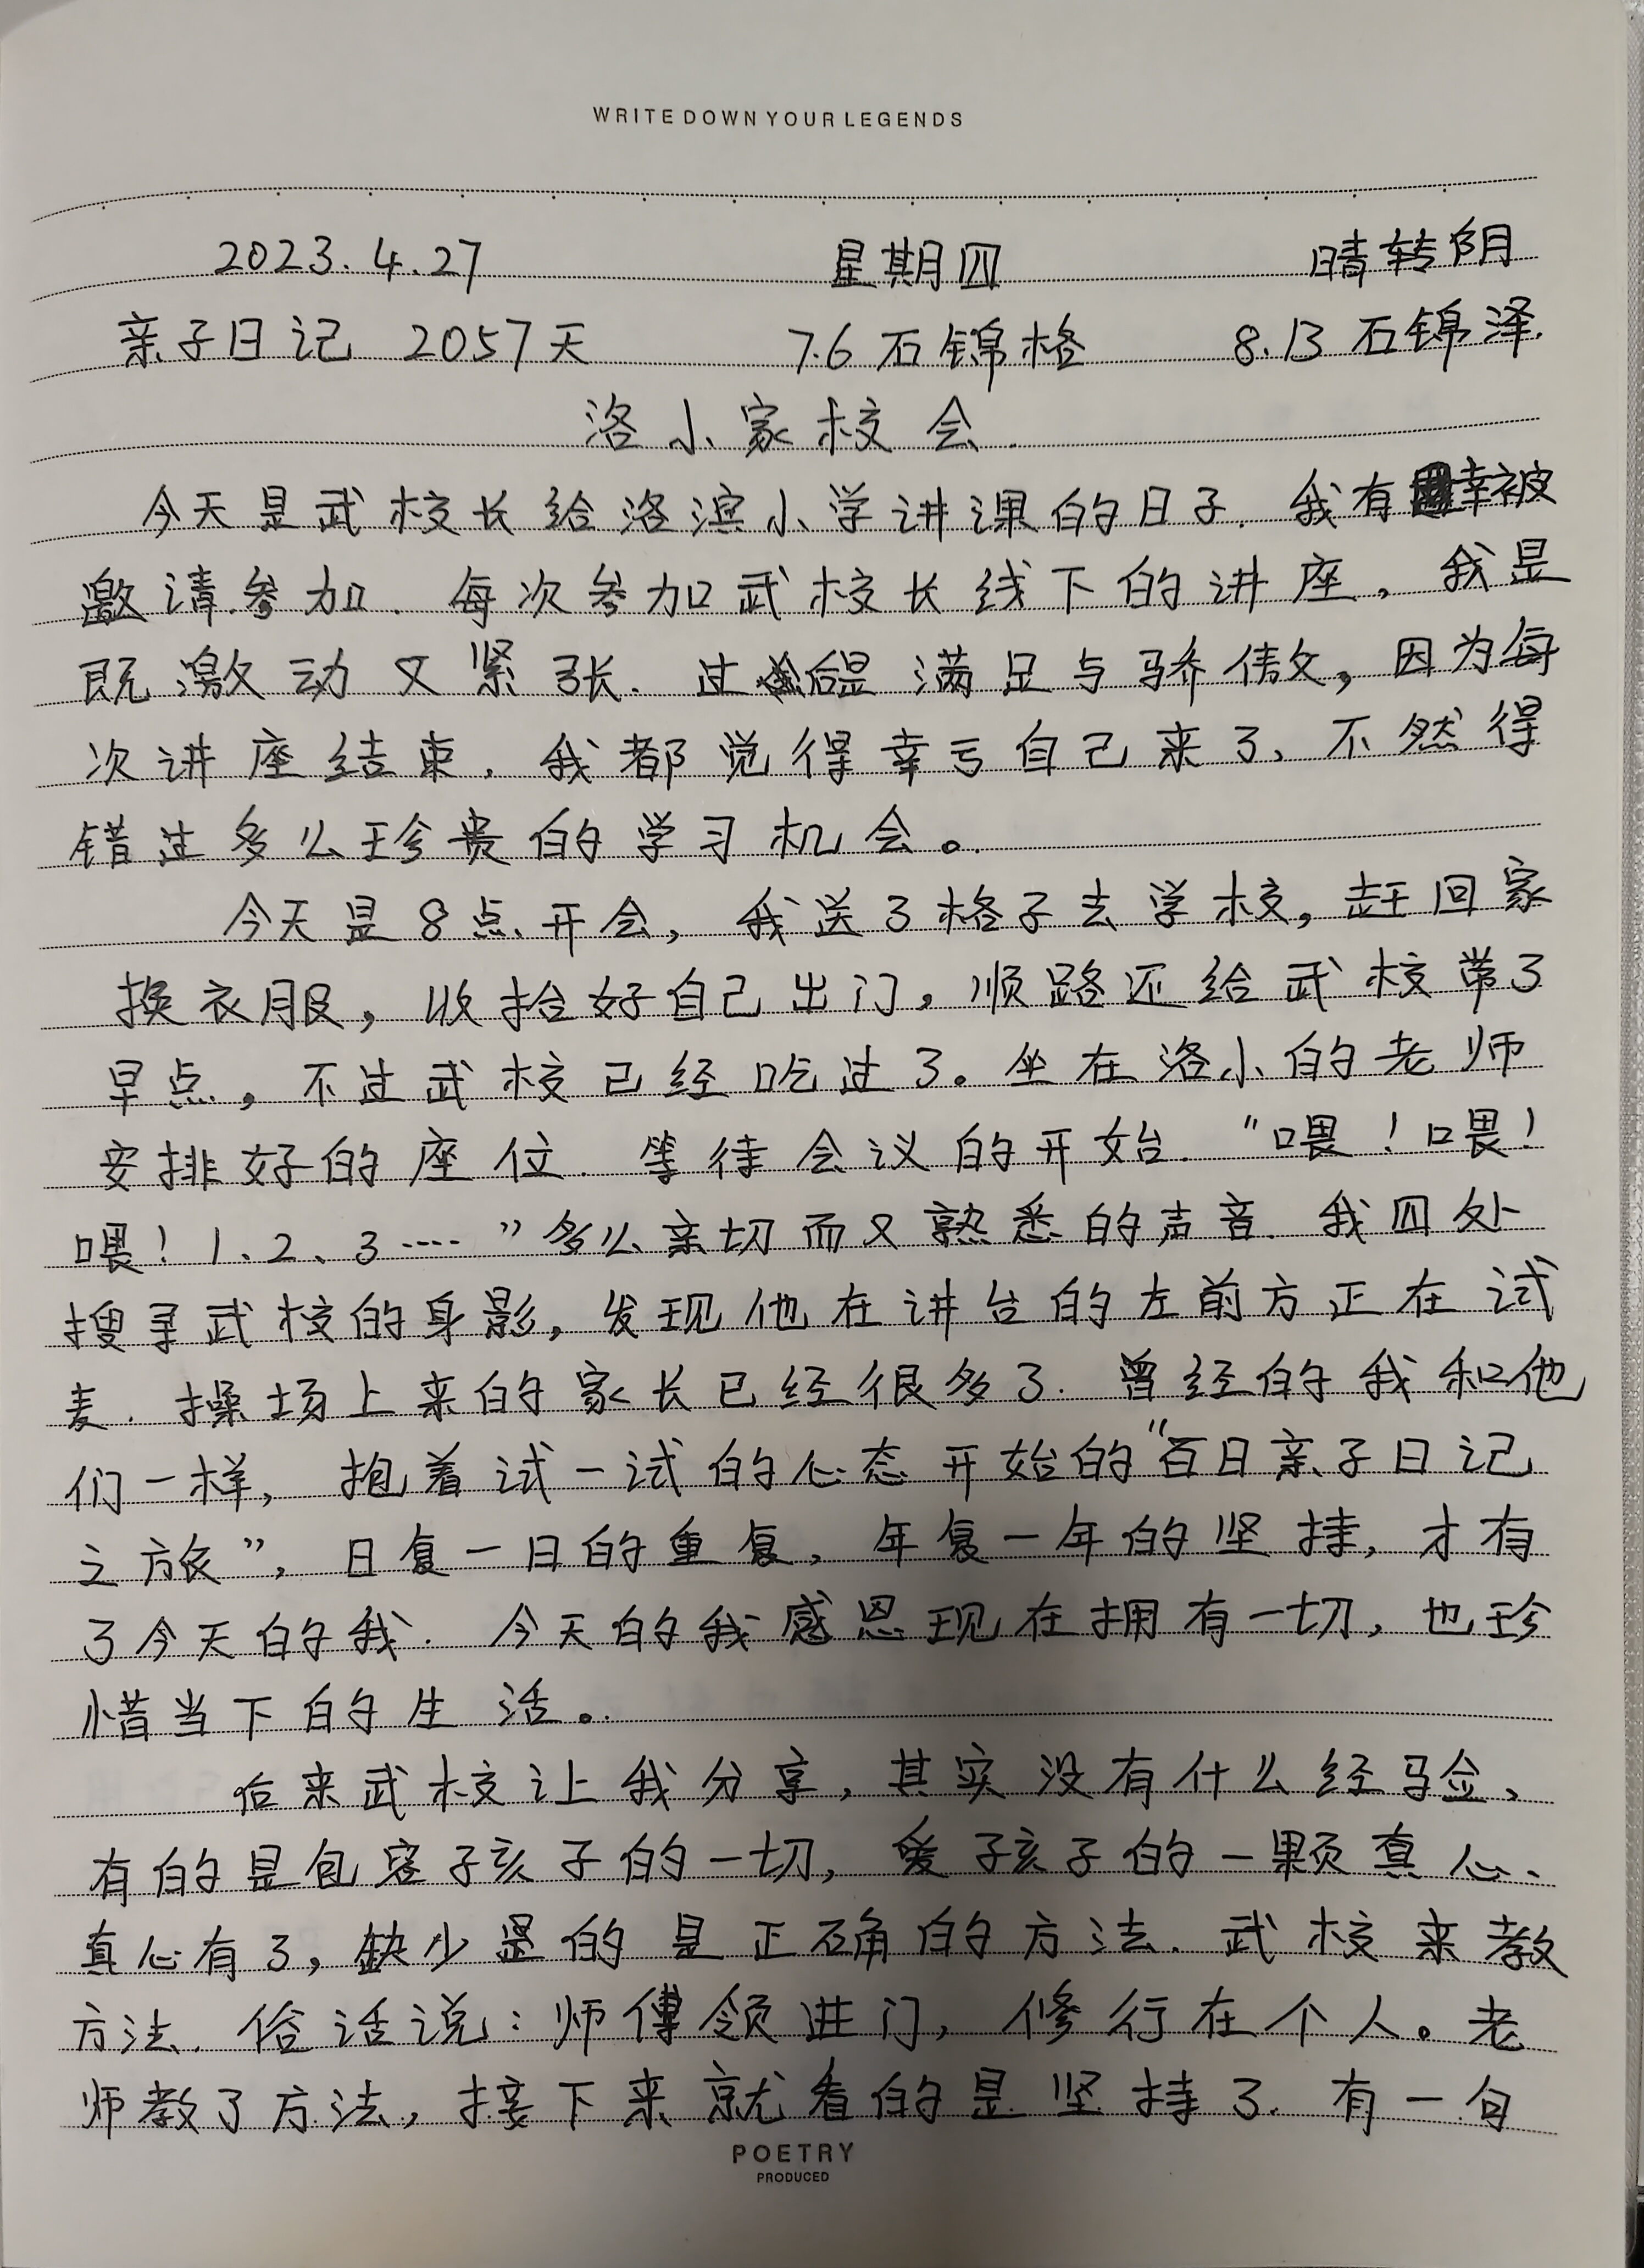 WRITE DOWN YOUR LEGENDS
2023.4.27 星期四 晴转阴
亲子日记 2057天 7.6石锦格 8.13石锦泽.
洛小家校会.
今天是武校长给洛滨小学讲课的日子.我有幸被
邀请参加.每次参加武校长线下的讲座,我是
既激动又紧张.过后是满足与骄傲,因为每
次讲座结束.我都觉得幸亏自己来了、不然得
错过多么珍贵的学习机会。
今天是8点开会,我送了格子去学校,赶回家
换衣服,收拾好自己出门,顺路还给武校带了
早点,不过武校已经吃过了。坐在洛小的老师
安排好的座位.等待会议的开始.“喂!喂!
喂!1、2、3····”多么亲切而又熟悉的声音.我四处
搜寻武校的身影,发现他在讲台的左前方正在试
麦.操场上来的家长已经很多了.曾经的我和他
们一样,抱着试一试的心态开始的“百日亲子日记
之旅”,日复一日的重复,年复一年的坚持,才有
了今天的我.今天的我感恩现在拥有一切,也珍
惜当下的生活。
后来武校让我分享,其实没有什么经验、
有的是包容孩子的一切,爱孩子的一颗真心、
真心有了,缺少是的是正确的方法.武校来教
方法.俗话说:师傅领进门,修行在个人。老
师教了方法,接下来就看的是坚持了.有一句
POETRY
PRODUCED